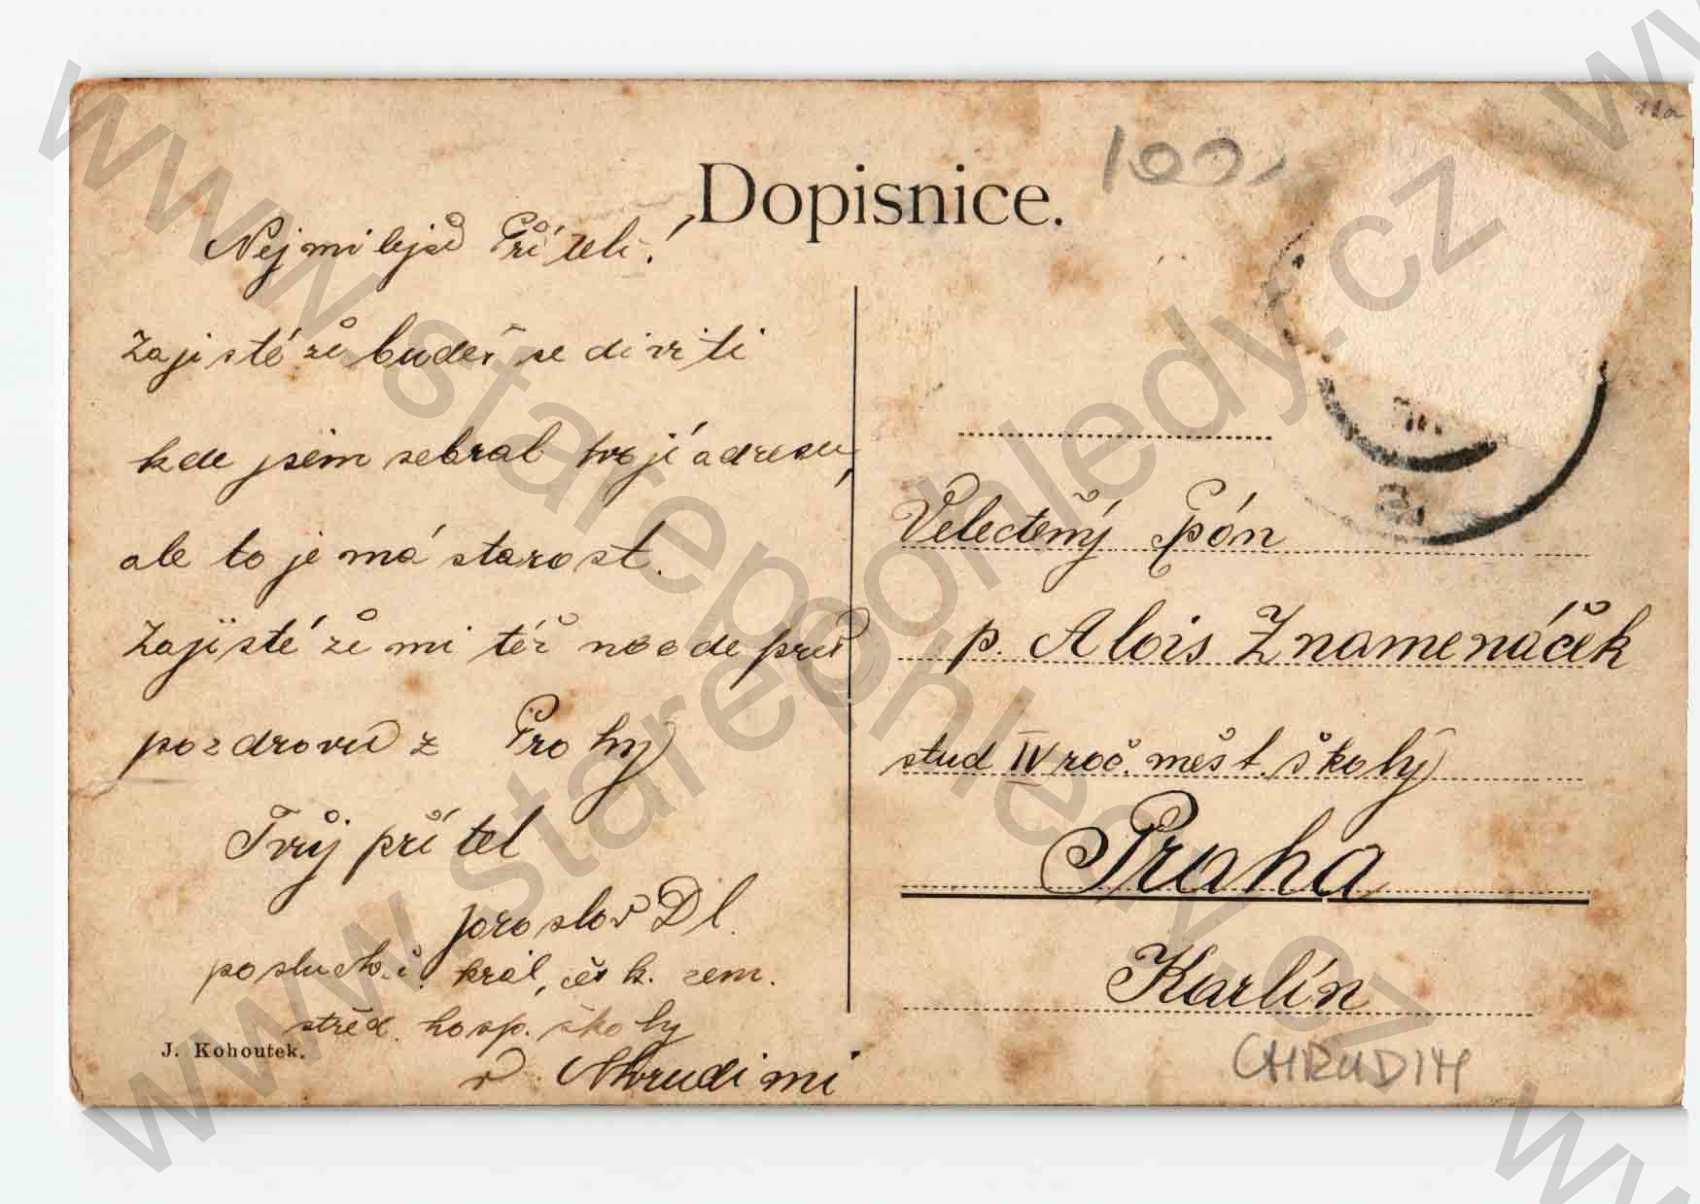 Dopisnice.
100,
11a
Nejmilejší Příteli!
Zajisté že budeš se diviti
kde jsem sebral tvoji adresu,
ale to je má starost.
Zajisté že mi též
pozdravů z Prahy
Tvůj přítel
Jaroslav Dl.
posluch. král. čes k. zem.
střed. hosp. školy
v Chrudimi
J. Kohoutek.
Velectěný Pán
p. Alois Znamenáček
stud IV roč. měšt. školy
Praha
Karlín
CHRUDIM
www.starepohledy.cz
www.starepohledy.cz